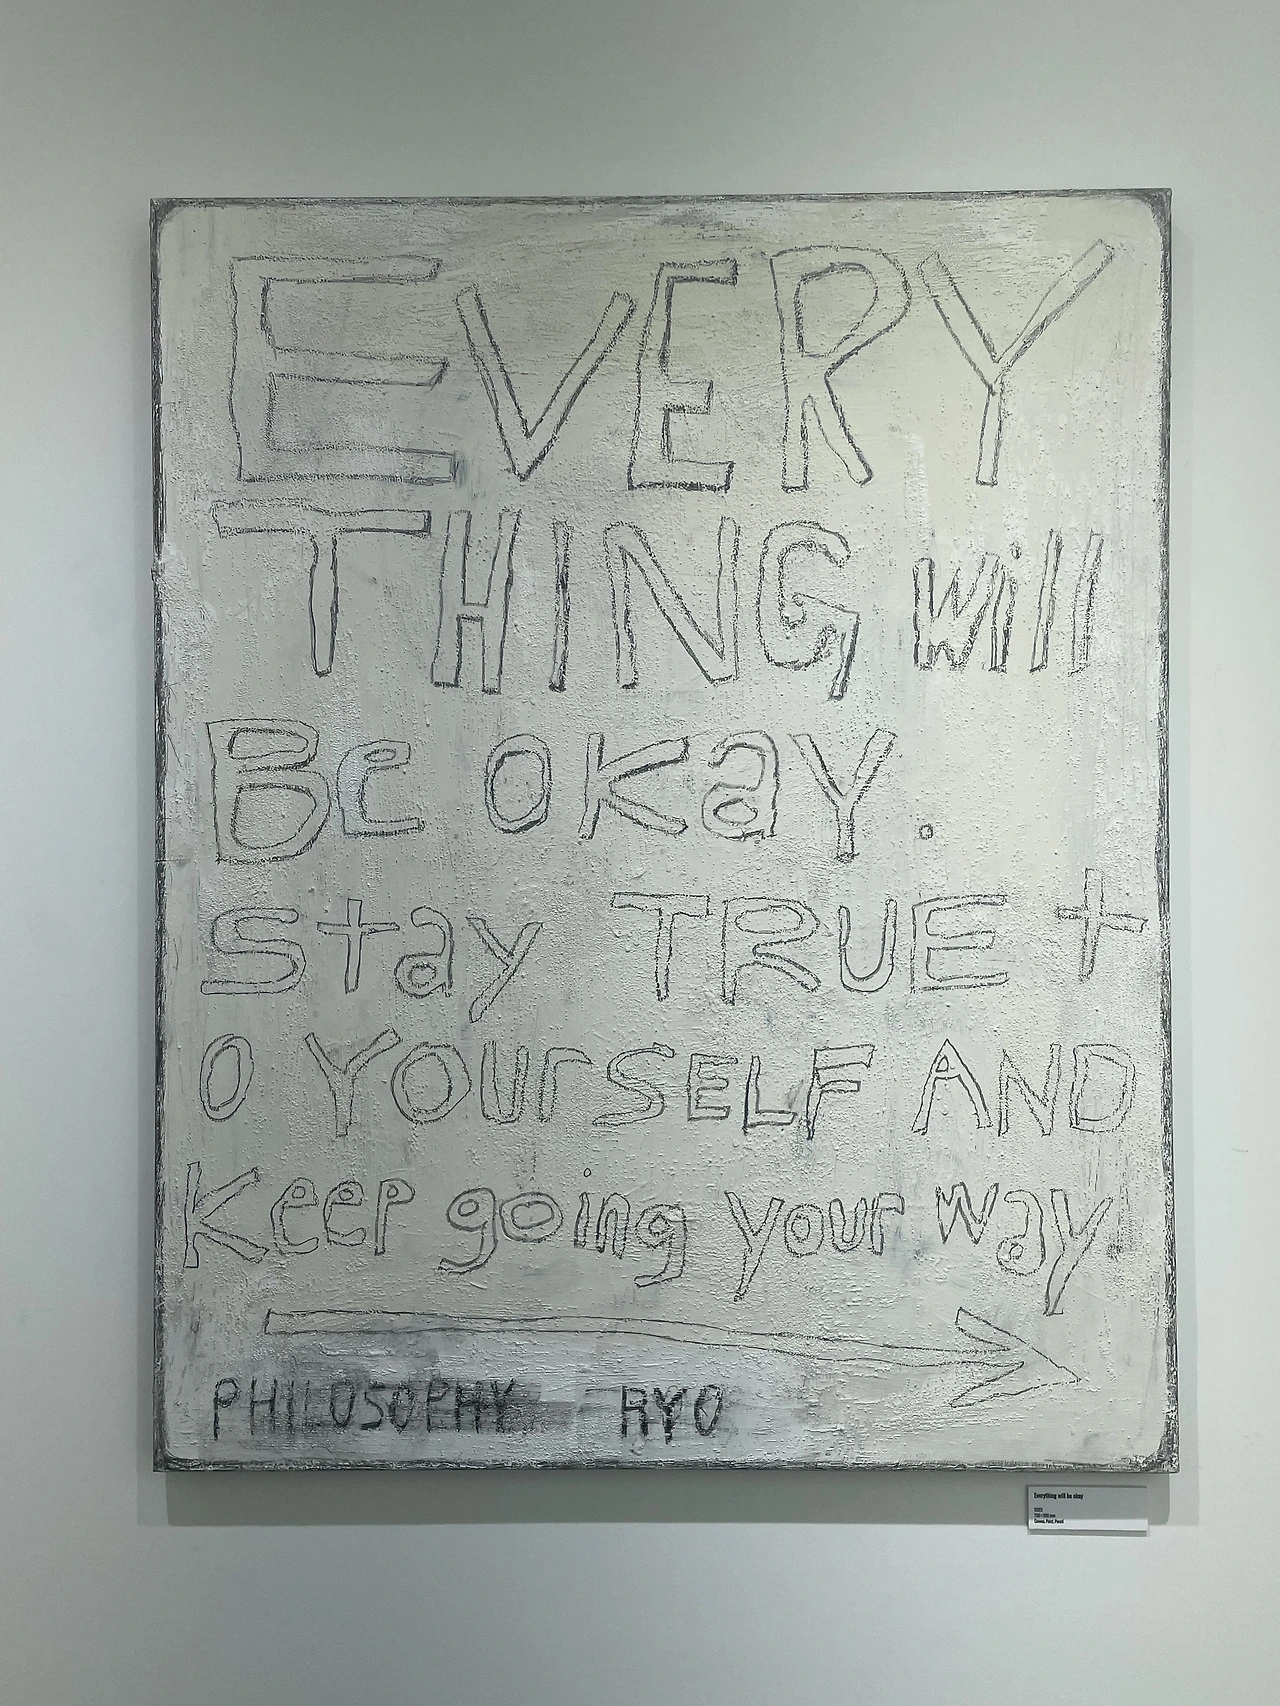 EVERY
THING will
Be OKay.
Stay TRUE t
O YOUrSELF AND
Keep going your way!
PHILOSOPHY RYO
Everything will be okay
Canvas, Paint, Pencil